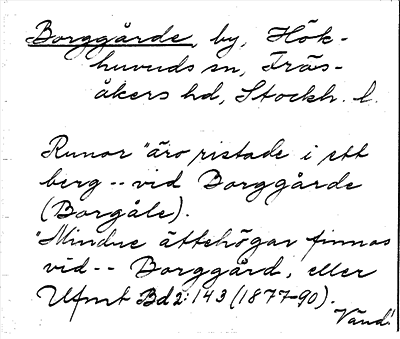 Borggårde, by, Hök-
huvuds sn, Frös-
åkers hd, Stockh. l.
Runor "äro ristade i ett
berg -- vid Borggårde
(Borgåle).
"Mindre ättehögar finnas
vid -- Borggård, eller
Ufmt Bd 2: 143 (1877-90).
Vänd!